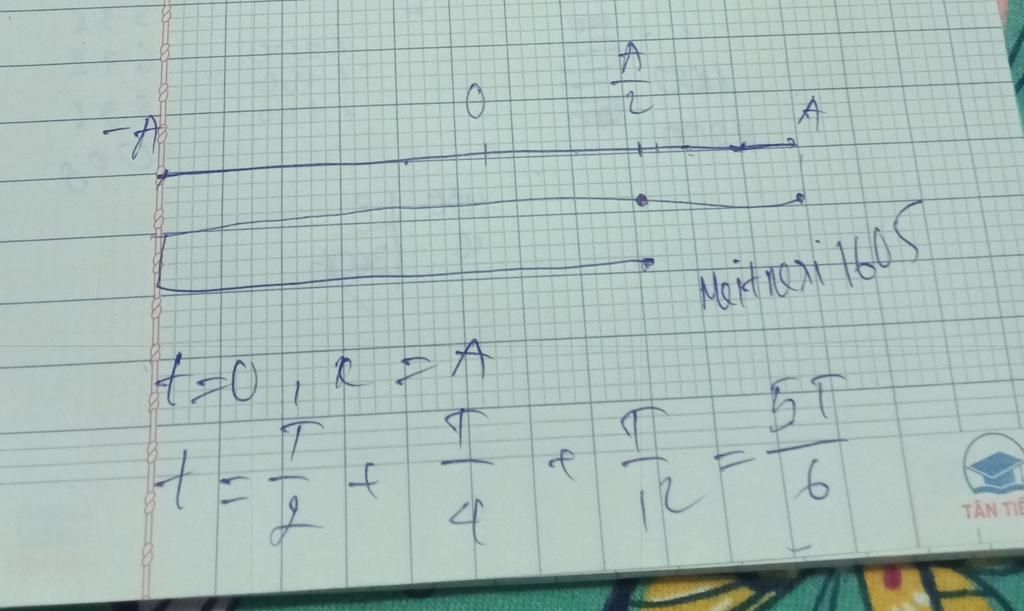 A/2
0
A
-A
Meitnexi 1605
t=0, x = A
t = T/2 + T/4 + T/12 = 5T/6
TÂN TIẾ